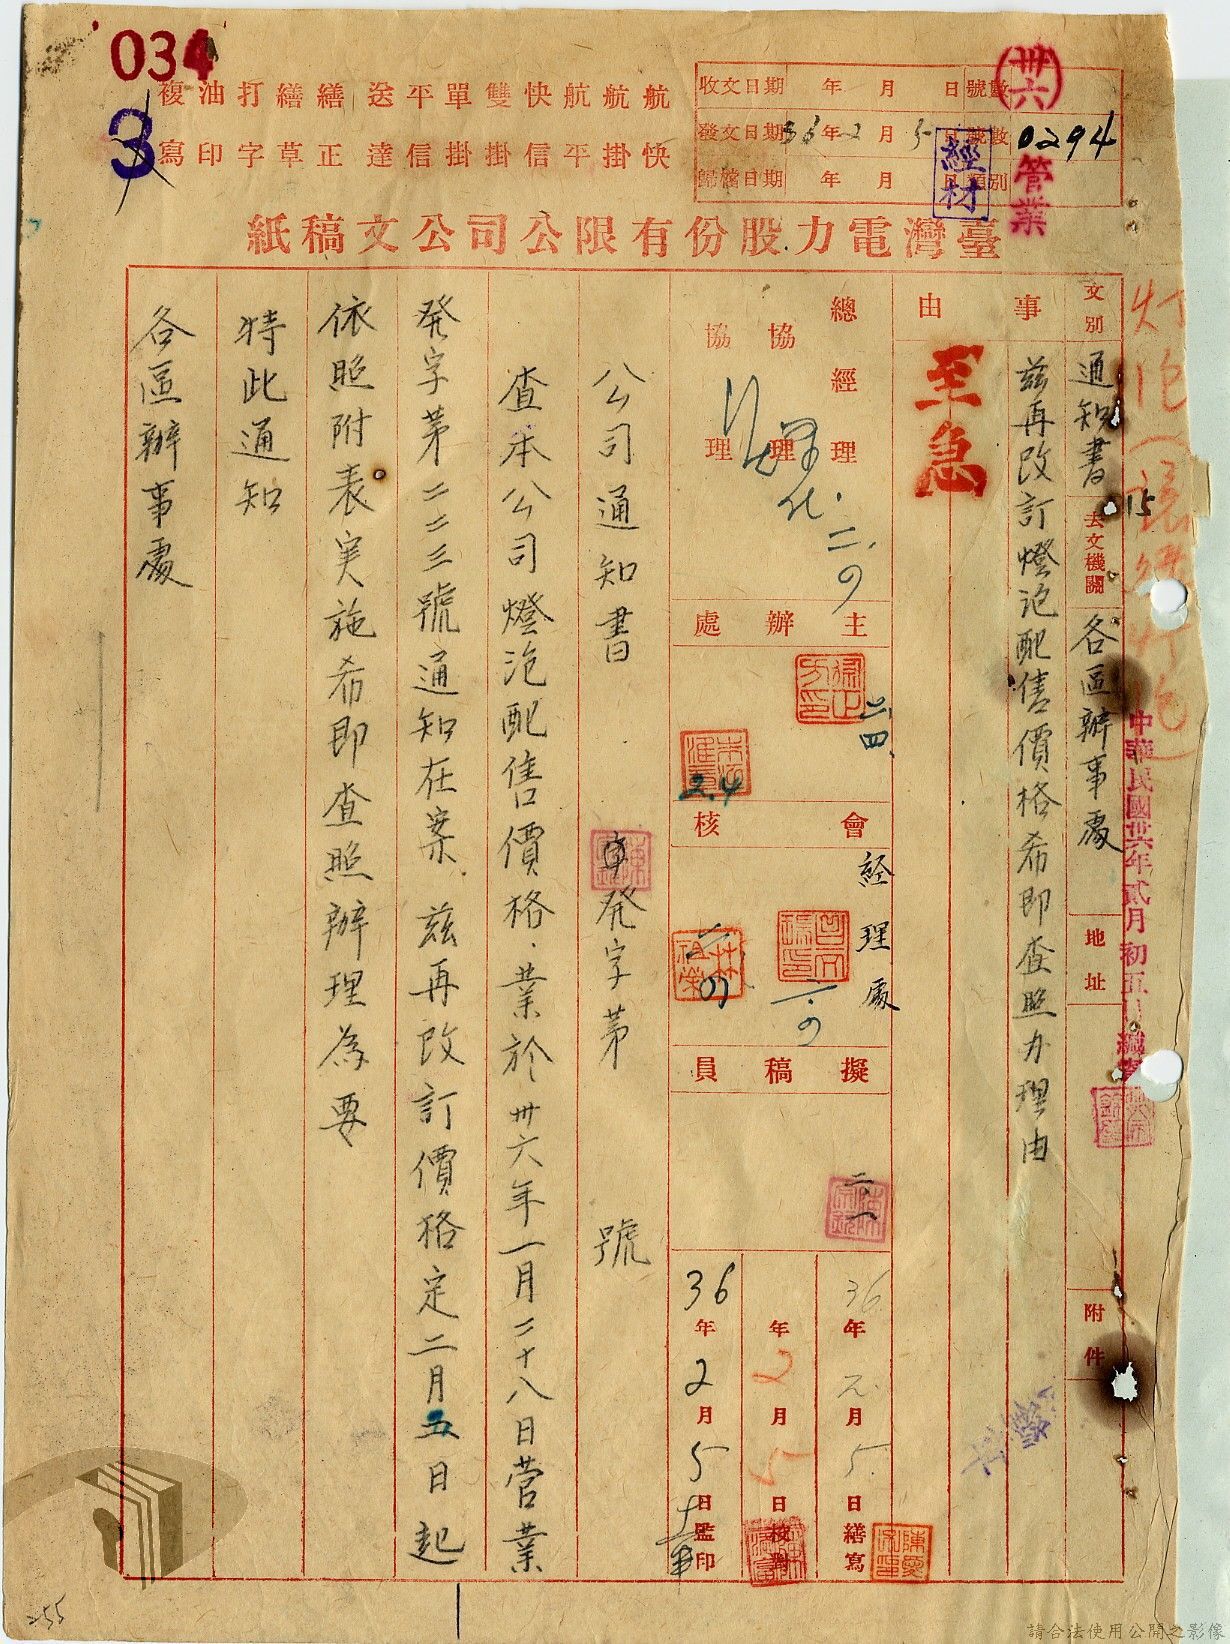 034
3
複寫 油印 打字 繕草 繕正 送達 平信 單掛 雙掛 快信 航平 航掛 航快
收文日期 年 月 日 號數
發文日期 36年2月5日 號數 0294
歸檔日期 年 月 日 類別
卅六
管業
經材
臺灣電力股份有限公司公文稿紙
文別 通知書 去文機關 各區辦事處 地址 附件
15
中華民國卅六年貳月初五日
事由
茲再改訂燈泡配售價格希即查照办理由
至急
總經理
協理
協理
二.
主辦處
二.四.
2.4
會核
経理處
擬稿員
二.一
36年元月5日繕寫
年2月5日校對
36年2月5日監印
公司通知書 發字第 號
查本公司燈泡配售價格.業於卅六年一月二十八日营業
發字第二二三號通知在案.茲再改訂價格定二月五日起
依照附表实施希即查照辦理為要
特此通知
各區辦事處
255
請合法使用公開之影像